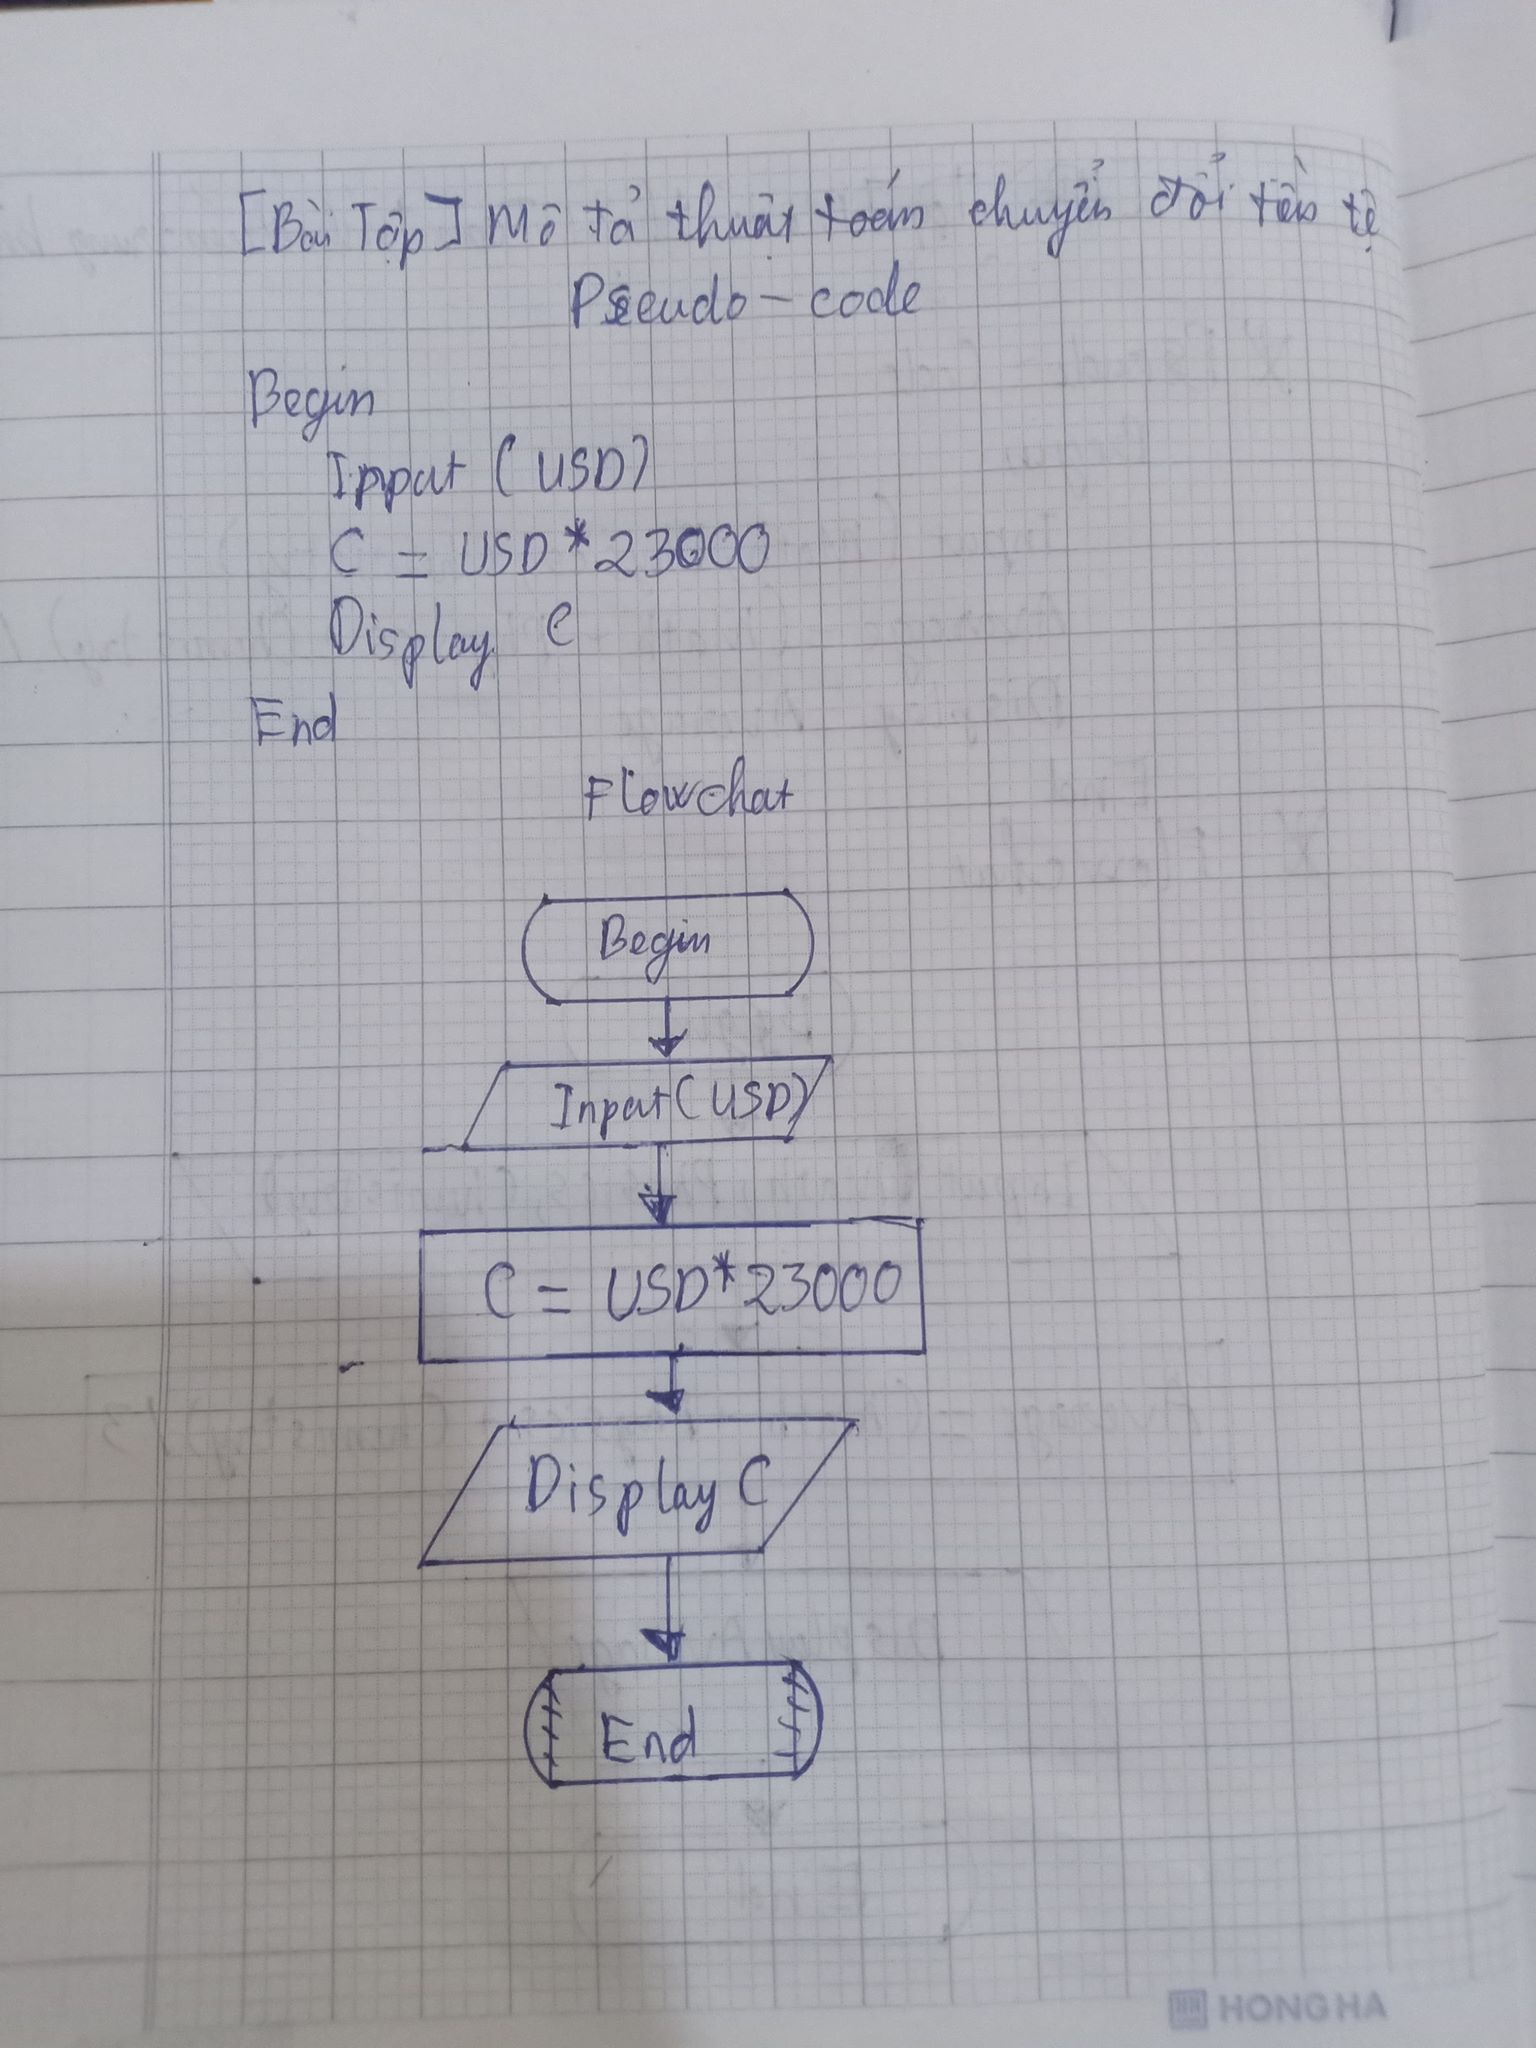 [Bài Tập] Mô tả thuật toán chuyển đổi tiền tệ
Pseudo-code
Begin
Input (USD)
C = USD * 23000
Display C
End
Flowchat
Begin
Input (USD)
C = USD * 23000
Display C
End
HONG HA